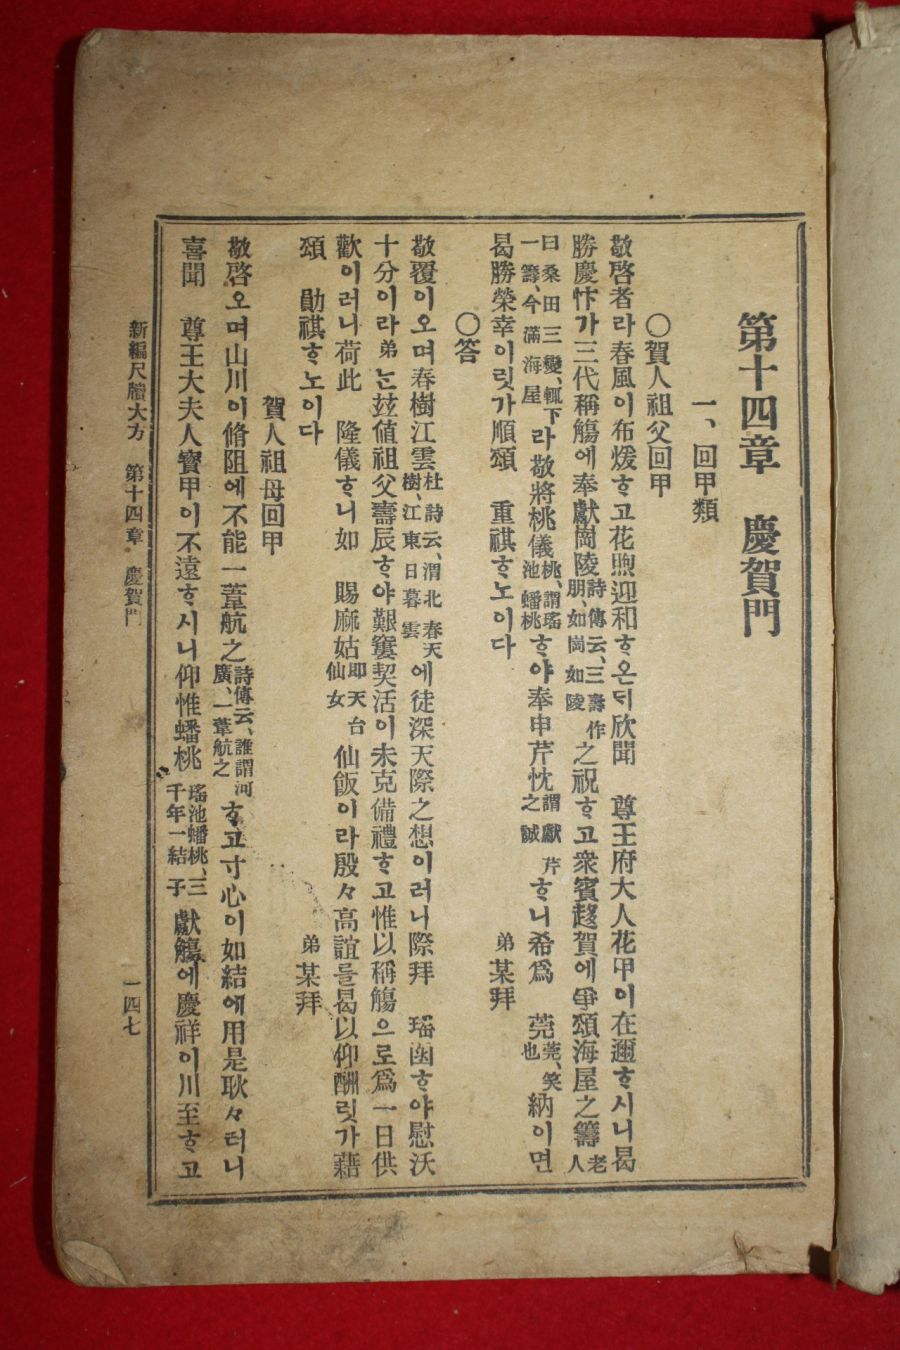 第十四章　慶賀門
一、回甲類
〇賀人祖父回甲
敬啓者라春風이布煖ᄒᆞ고花煦迎和ᄒᆞ온ᄃᆡ欣聞　尊王府大人花甲이在邇ᄒᆞ시니曷
勝慶忭가三代稱觴에奉獻崗陵詩傳云、三壽作朋、如崗如陵之祝ᄒᆞ고衆賓趍賀에爭頌海屋之籌老人
曰桑田三變、輒下一籌、今滿海屋라敬將桃儀桃、謂瑤池蟠桃ᄒᆞ야奉申芹忱謂獻芹之誠ᄒᆞ니希爲　莞莞、笑也納이면
曷勝榮幸이릿가順頌　重祺ᄒᆞ노이다　弟某拜
〇答
敬覆이오며春樹江雲杜詩云、渭北春天樹、江東日暮雲에徒深天際之想이러니際拜　瑤函ᄒᆞ야慰沃
十分이라弟ᄂᆞᆫ玆値祖父壽辰ᄒᆞ야艱窶契活이未克備禮ᄒᆞ고惟以稱觴으로爲一日供
歡이러니荷此　隆儀ᄒᆞ니如　賜麻姑即天台仙女仙飯이라殷々高誼를曷以仰酬릿가藉
頌　勛祺ᄒᆞ노이다　弟某拜
賀人祖母回甲
敬啓오며山川이脩阻에不能一葦航之詩傳云、誰謂河廣、一葦航之ᄒᆞ고寸心이如結에用是耿々터니
喜聞　尊王大夫人寶甲이不遠ᄒᆞ시니仰惟蟠桃瑤池蟠桃、三千年一結子獻觴에慶祥이川至ᄒᆞ고
新編尺牘大方　第十四章　慶賀門　一四七